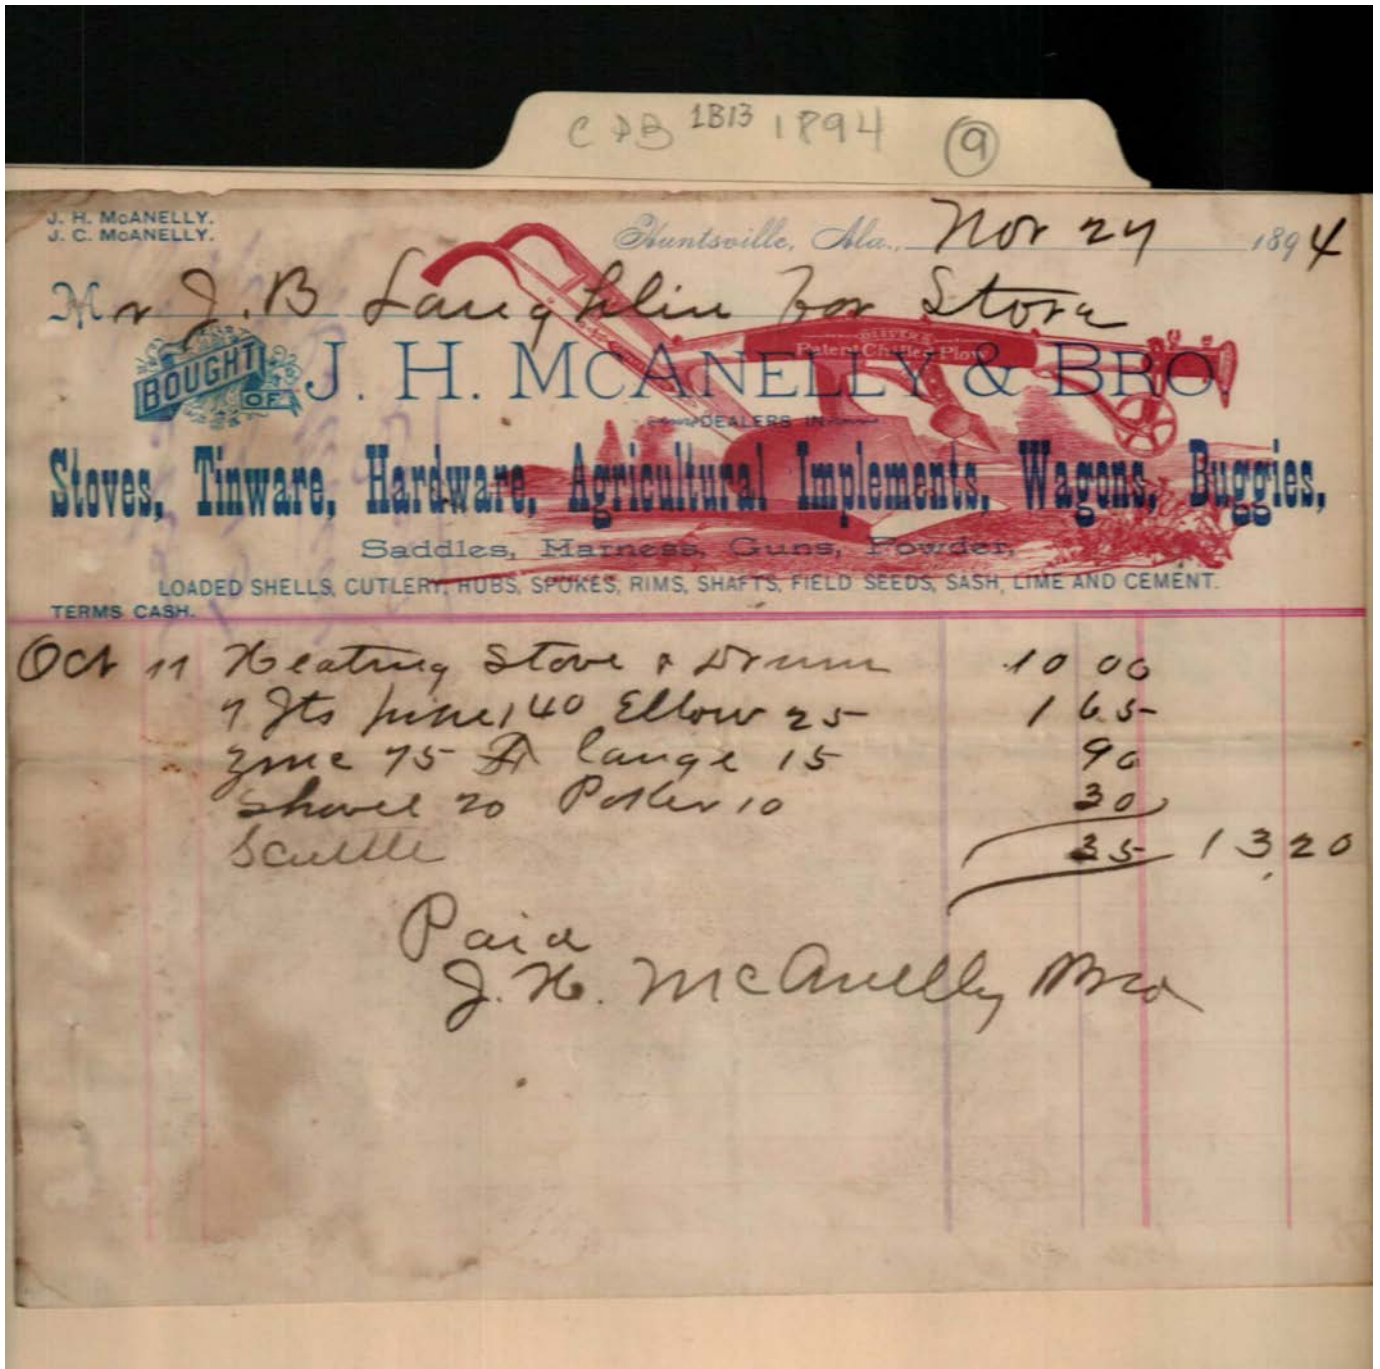 C & B 1B13 1894 9
J. H. McANELLY.
J. C. McANELLY.
Huntsville, Ala., Nov 27 1894
Mr J. B Laughlin for Store
BOUGHT OF J. H. McANELLY & BRO.
OLIVER'S
Patent Chilled Plow
DEALERS IN
Stoves, Tinware, Hardware, Agricultural Implements, Wagons, Buggies,
Saddles, Harness, Guns, Powder,
LOADED SHELLS, CUTLERY, HUBS, SPOKES, RIMS, SHAFTS, FIELD SEEDS, SASH, LIME AND CEMENT.
TERMS CASH.
Oct 11 Heating Stove & Drum 10 00
7 Jts pipe 140 Elbow 25 1 65
Zinc 75 15 90
Shovel 20 Poker 10 30
Scuttle 35 13 20
Paid
J. H. McAnelly Bro